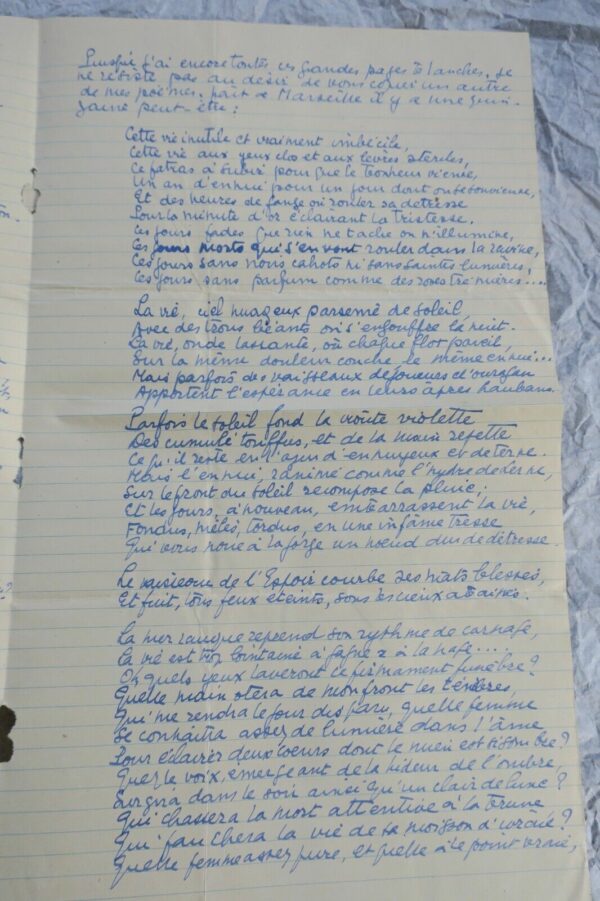 Puisque j'ai encore toutes ces grandes pages blanches, je
ne résiste pas au désir de vous copier un autre
de mes poèmes, fait à Marseille il y a une quin-
zaine peut-être :
Cette vie inutile et vraiment imbécile,
Cette vie aux yeux clos et aux lèvres stériles,
Ce fatras à subir pour que le bonheur vienne,
Un an d'ennui pour un jour dont on se souvienne,
Et des heures de fange où rouler sa détresse
Pour la minute d'or éclairant la tristesse.
Ces jours fades que rien ne tache ou n'illumine,
Ces jours morts qui s'en vont rouler dans la ravine,
Ces jours sans noirs cahots ni sans saintes lumières,
Ces jours sans parfum comme des roses trémières....
La vie, ciel nuageux parsemé de soleil,
Avec des trous béants où s'engouffre la nuit.
La vie, onde lassante, où chaque flot pareil,
Sur la même douleur couche le même ennui...
Mais parfois des vaisseaux d'ouragan
Apportent l'espérance en leurs âpres haubans.
Parfois le soleil fond la voûte violette
Des cumuli touffus, et de la main rejette
Ce qu'il reste en l'azur d'ennuyeux et de terne.
Mais l'ennui, ranimé comme l'hydre de Lerne,
Sur le front du soleil recompose la pluie ;
Et les jours, à nouveau, embarrassent la vie,
Fondus, mêlés, tordus, en une infâme tresse
Qui vous noue à la gorge un noeud dur de détresse.
Le vaisseau de l'Espoir courbe ses mâts blessés,
Et fuit, tous feux éteints, sous les cieux abaissés.
La mer rauque reprend son rythme de carnage,
La vie est trop lointaine à gagner à la nage....
Oh quels yeux laveront ce firmament funèbre ?
Quelle main ôtera de mon front les ténèbres,
Qui me rendra le jour disparu, quelle femme
Se connaîtra assez de lumière dans l'âme
Pour éclairer deux coeurs dont le mien est si sombre ?
Quelle voix, émergeant de la hideur de l'ombre,
Surgira dans le soir ainsi qu'un clair de lune ?
Qui chassera la mort attentive à la brune
Qui fauchera la vie de sa moisson d'ivraie ?
Quelle femme assez pure, et qu'elle à le point vraie,